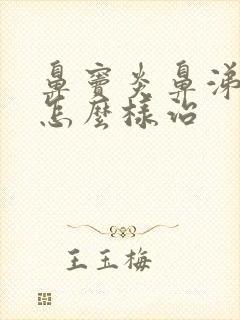 鼻窦炎鼻涕
怎麼樣治
王玉梅